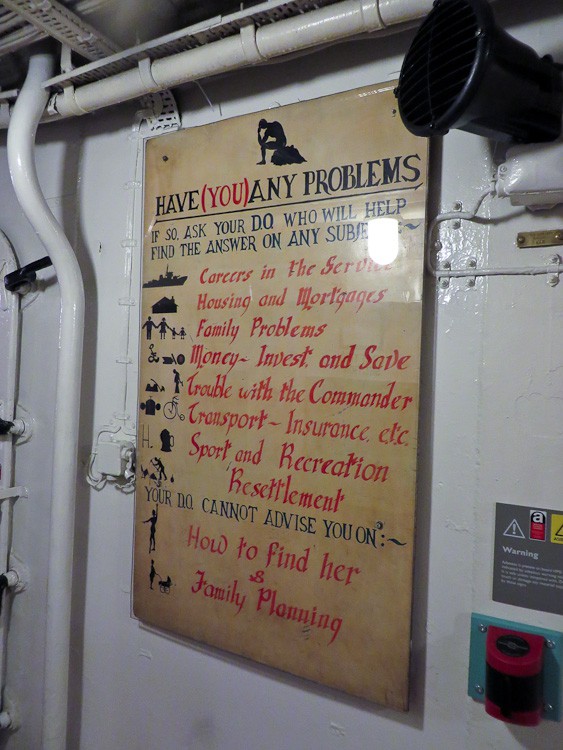 HAVE (YOU) ANY PROBLEMS
IF SO, ASK YOUR D.O. WHO WILL HELP
FIND THE ANSWER ON ANY
Careers in the Service
Housing and Mortgages
Family Problems
Money~ Invest. and Save
Trouble with the Commander
Transport~ Insurance, etc.
Sport and Recreation
Resettlement
YOUR D.O. CANNOT ADVISE YOU ON:~
How to find her
&
Family Planning
a
Warning